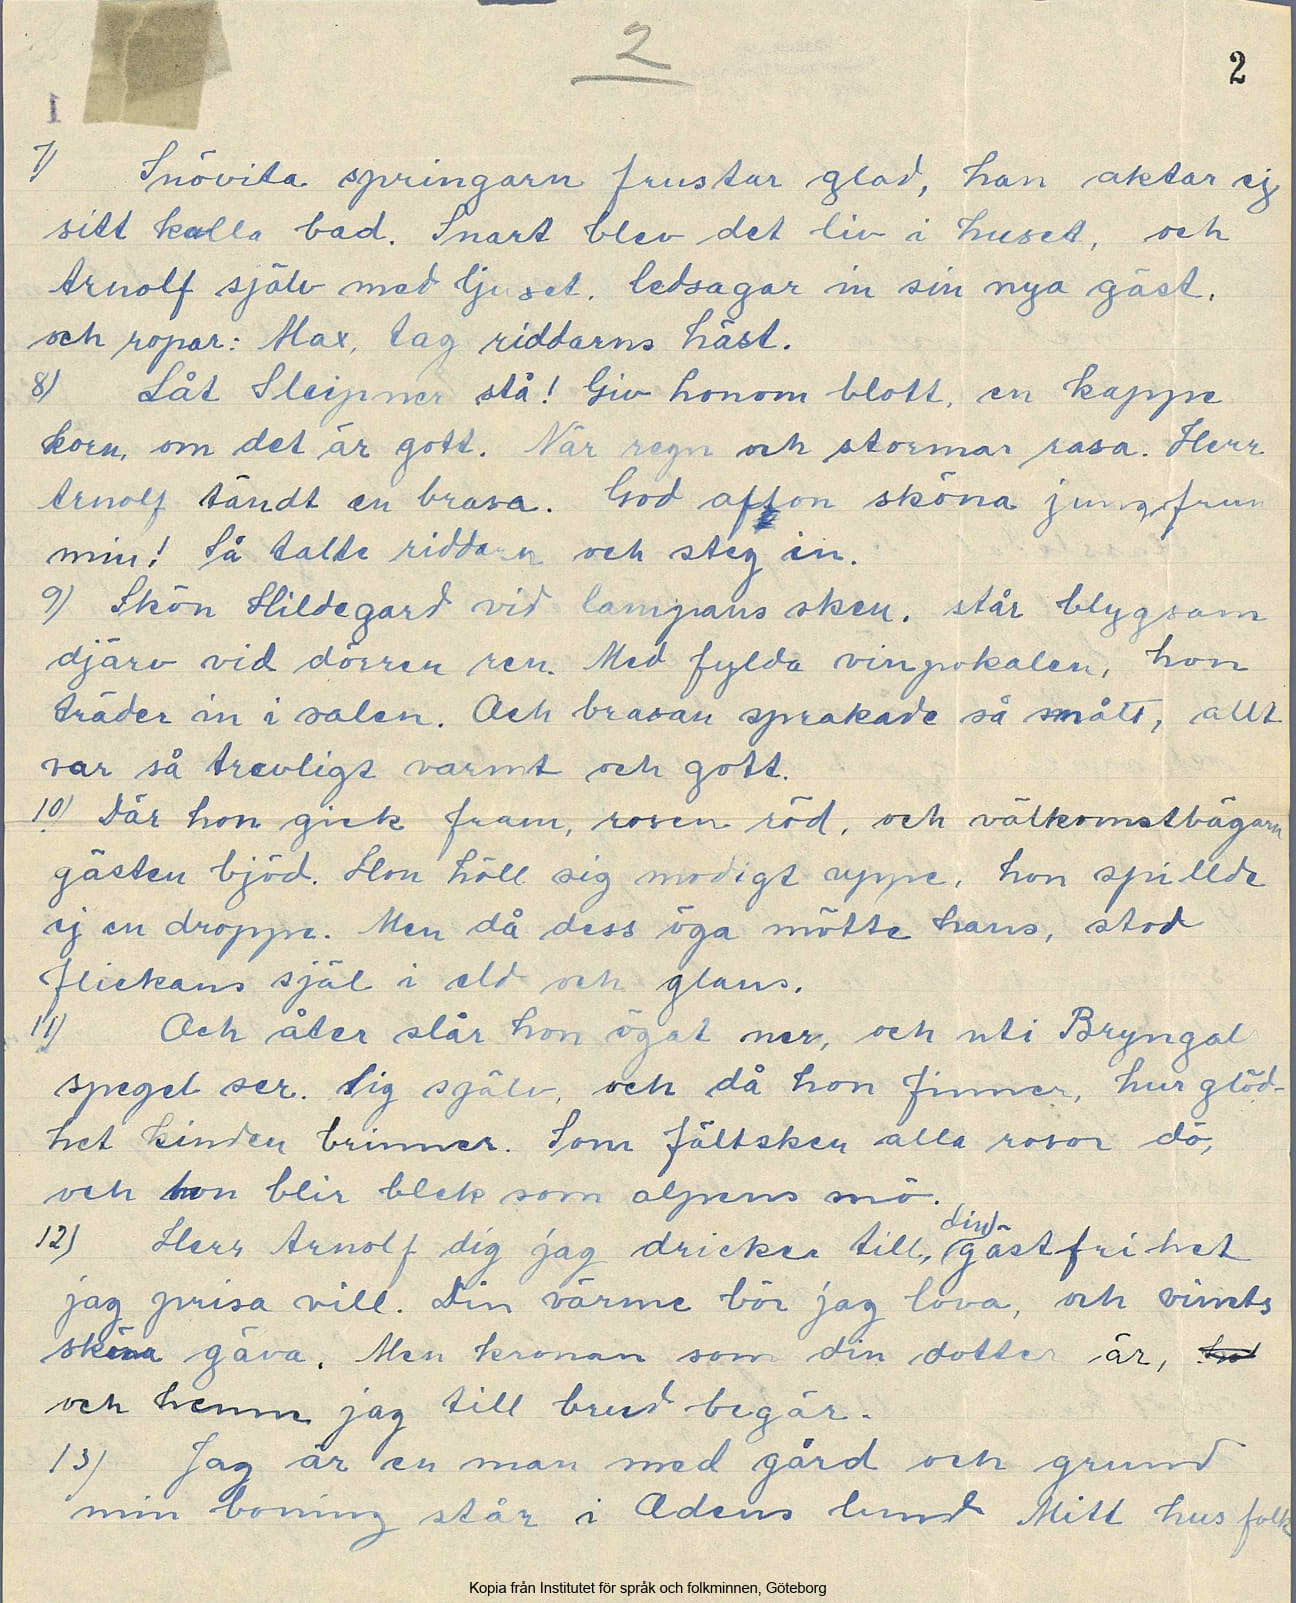 2
2
1
7) Snövita springarn frustar glad, han aktar ej
sitt kalla bad. Snart blev det liv i huset, och
Arnolf själv med ljuset, ledsagar in sin nya gäst,
och ropar: Max, tag riddarns häst.
8) Låt Sleipner stå! Giv honom blott, en kappe
korn, om det är gott. När regn och stormar rasa. Herr
Arnolf tändt en brasa. God afton sköna jungfrun
min! Så talte riddarn och steg in.
9) Skön Hildegard vid lampans sken, står blygsam
djärv vid dörren ren. Med fylda vinpokalen, hon
träder in i salen. Och brasan sprakade så smått, allt
var så trevligt varmt och gott.
10) Där hon gick fram, rosen röd, och välkomstbägarn
gästen bjöd. Hon höll sig modigt uppe, hon spillde
ej en droppe. Men då dess öga mötte hans, stod
flickans själ i eld och glans.
11) Och åter slår hon ögat ner, och uti Bryngal
spegel ser. Sig själv, och då hon finner, hur glöd-
het kinden brinner. Som fältsken alla rosor dö,
och hon blir blek som alpens snö.
12) Herr Arnolf dig jag dricker till, din gästfrihet
jag prisa vill. Din värme bör jag lova, och vinets
sköna gåva. Men kronan som din dotter är,
och henne jag till brud begär.
13) Jag är en man med gård och grund
min boning står i Edens lund Mitt husfolk
Kopia från Institutet för språk och folkminnen, Göteborg